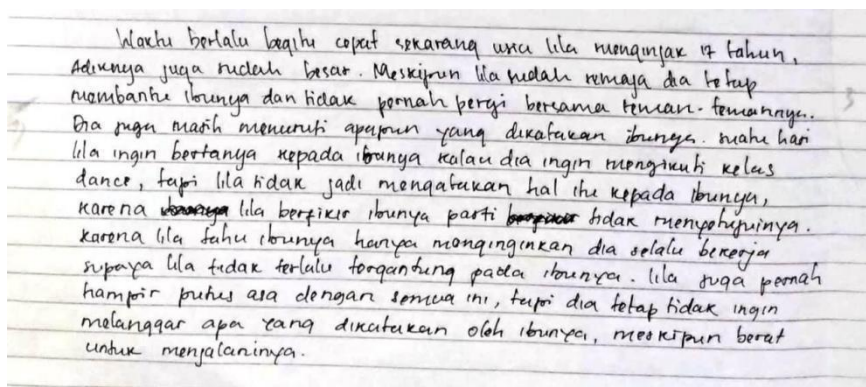 Waktu berlalu begitu cepat sekarang usia lila menginjak 17 tahun,
Adiknya juga sudah besar. Meskipun lila sudah remaja dia tetap
membantu ibunya dan tidak pernah pergi bersama teman-temannya.
Dia juga masih menuruti apapun yang dikatakan ibunya. suatu hari
lila ingin bertanya kepada ibunya kalau dia ingin mengikuti kelas
dance, tapi lila tidak jadi mengatakan hal itu kepada ibunya,
karena lila berfikir ibunya pasti tidak menyetujuinya.
karena lila tahu ibunya hanya menginginkan dia selalu bekerja
supaya lila tidak terlalu tergantung pada ibunya. lila juga pernah
hampir putus asa dengan semua ini, tapi dia tetap tidak ingin
melanggar apa yang dikatakan oleh ibunya, meskipun berat
untuk menjalaninya.